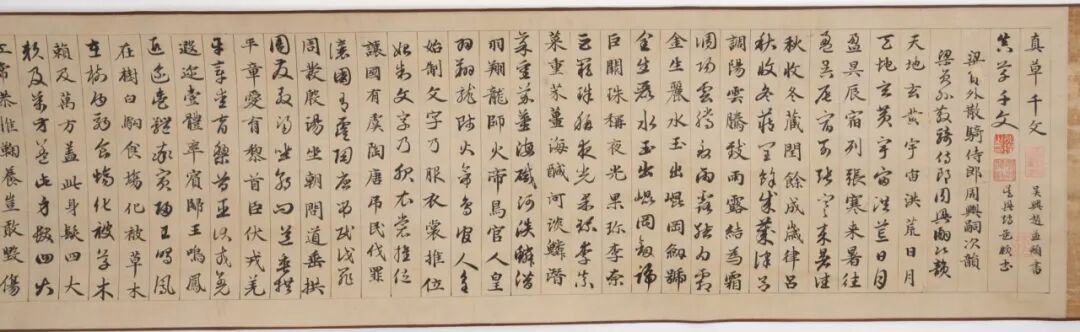 真草千文
吴興趙孟頫書
真草千文
吴興趙孟頫書
梁員外散騎侍郎周興嗣次韻
梁員外散騎侍郎周興嗣次韻
天地玄黄宇宙洪荒日月
天地玄黄宇宙洪荒日月
盈昃辰宿列張寒来暑往
盈昃辰宿列張寒来暑往
秋收冬藏閏餘成歲律吕
秋收冬藏閏餘成歲律吕
調陽雲騰致雨露結為霜
調陽雲騰致雨露結為霜
金生麗水玉出崐岡劒號
金生麗水玉出崐岡劒號
巨闕珠稱夜光果珎李柰
巨闕珠稱夜光果珎李柰
菜重芥薑海醎河淡鱗潛
菜重芥薑海醎河淡鱗潛
羽翔龍師火帝鳥官人皇
羽翔龍師火帝鳥官人皇
始制文字乃服衣裳推位
始制文字乃服衣裳推位
讓國有虞陶唐吊民伐罪
讓國有虞陶唐吊民伐罪
周發殷湯坐朝問道垂拱
周發殷湯坐朝問道垂拱
平章愛育黎首臣伏戎羌
平章愛育黎首臣伏戎羌
遐迩壹體率賓歸王鳴鳳
遐迩壹體率賓歸王鳴鳳
在樹白駒食場化被草木
在樹白駒食場化被草木
賴及萬方盖此身髮四大
賴及萬方盖此身髮四大
五常恭惟鞠養豈敢毁傷